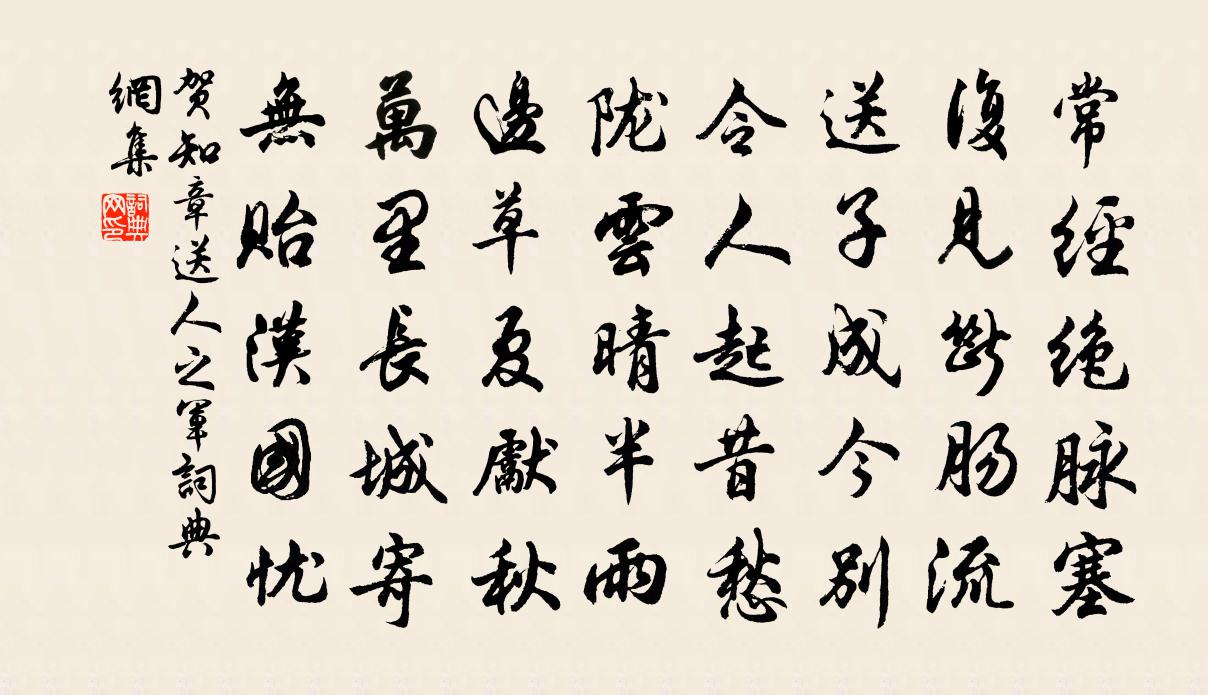 常經绝脉塞
復見斷肠流
送子成今别
令人起昔愁
陇雲晴半雨
邊草夏獻秋
萬里長城寄
無貽漢國忧
贺知章送人之軍詞典
網集
詞典
网印